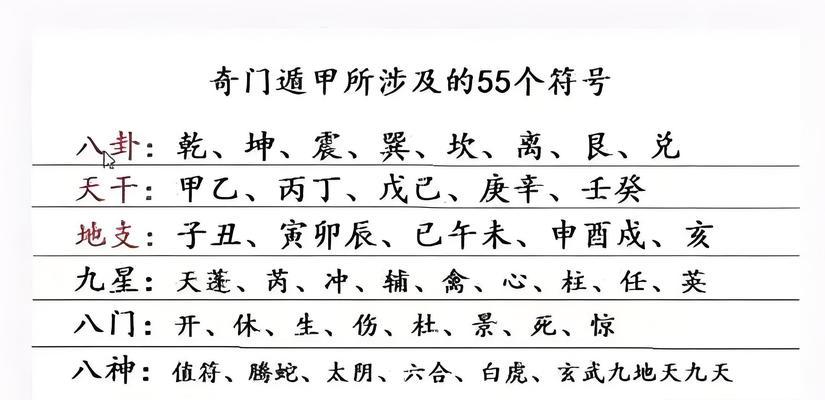 奇门遁甲所涉及的55个符号
八卦：乾、坤、震、巽、坎、离、艮、兑
天干：甲乙、丙丁、戊己、庚辛、壬癸
地支：子丑、寅卯辰、已午未、申酉戌、亥
九星：天蓬、芮、冲、辅、禽、心、柱、任、英
八门：开、休、生、伤、杜、景、死、惊
八神：值符、腾蛇、太阴、六合、白虎、玄武九地天九天